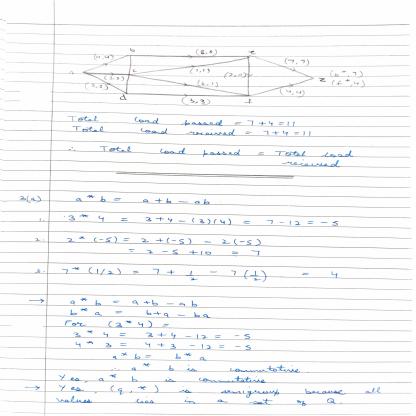 b (8,8) e (7,7)
c
z (e+, 7)
(f+, 4)
d (3,3) f (4,4)
Total load passed = 7+4=11
Total load received = 7+4=11
∴ Total load passed = Total load
received
a * b = a+b-ab
1. 3 * 4 = 3+4-(3)(4) = 7-12 = -5
2. 2 * (-5) = 2+(-5) - 2(-5)
= 2-5+10 = 7
3. 7 * (1/2) = 7 + 1/2 - 7(1/2) = 4
→ a * b = a+b-ab
b * a = b+a-ba
For (3*4) =
3 * 4 = 3+4-12 = -5
4 * 3 = 4+3-12 = -5
a * b = b * a
∴ a * b is commutative.
Yes, a * b is commutative
→ Yes, (Q, *) is semigroup because all
values lies in a set of Q.